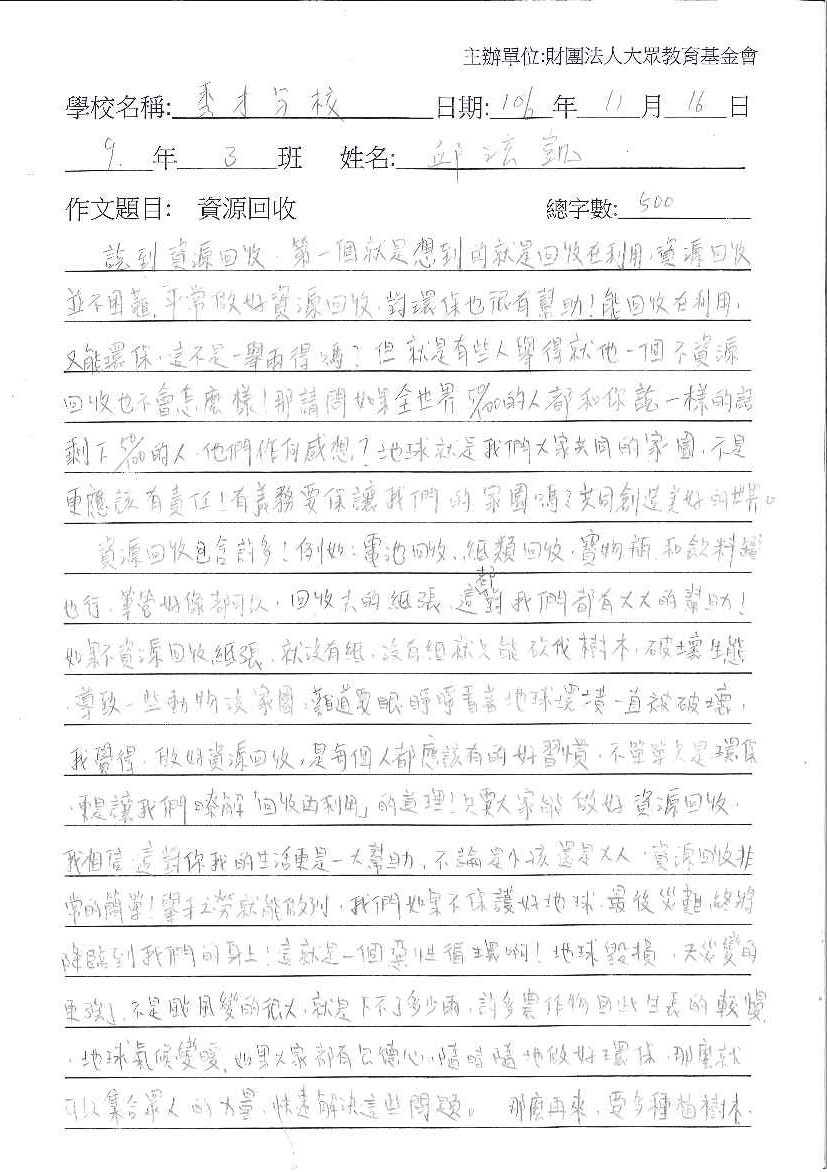 主辦單位:財團法人大眾教育基金會
學校名稱: 秀才分校 日期: 106 年 11 月 16 日
9. 年 3 班 姓名: 邱泫凱
作文題目: 資源回收 總字數: 500
談到資源回收,第一個就是想到的就是回收在利用,資源回收
並不困難,平常做好資源回收,對環保也很有幫助!能回收在利用,
又能環保,這不是一舉兩得嗎?但就是有些人舉得就他一個不資源
回收也不會怎麼樣!那請問如果全世界 50/100的人都和你說一樣的話
剩下 50/100的人,他們作何感想?地球就是我們大家共同的家園,不是
更應該有責任!有義務要保讓我們的家園嗎?共同創造美好的世界。
資源回收包含許多!例如:電池回收、紙類回收,寶物瓶和飲料罐
也行,筆管好像都可以,回收大的紙張,這都對我們都有大大的幫助!
如果不資源回收紙張,就沒有紙,沒有紙就只能砍伐樹木,破壞生態
,導致一些動物沒家園,難道要眼睜睜看著地球環境一直被破壞,
我覺得,做好資源回收,是每個人都應該有的好習慣,不單單只是環保
,更是讓我們瞭解「回收再利用」的道理!只要大家能做好資源回收,
我相信,這對你我的生活更是一大幫助,不論是小孩還是大人,資源回收非
常的簡單!舉手之勞就能做到,我們如果不保護好地球,最後災難終將
降臨到我們的身上!這就是一個惡性循環啊!地球毀損,天災變的
更強了,不是颱風變的很大,就是下不了多少雨,許多農作物因此生長的較慢
,地球氣候變暖,如果大家都有公德心,隨時隨地做好環保,那麼就
可以集合眾人的力量,快速解決這些問題。 那麼再來,要多種植樹木,